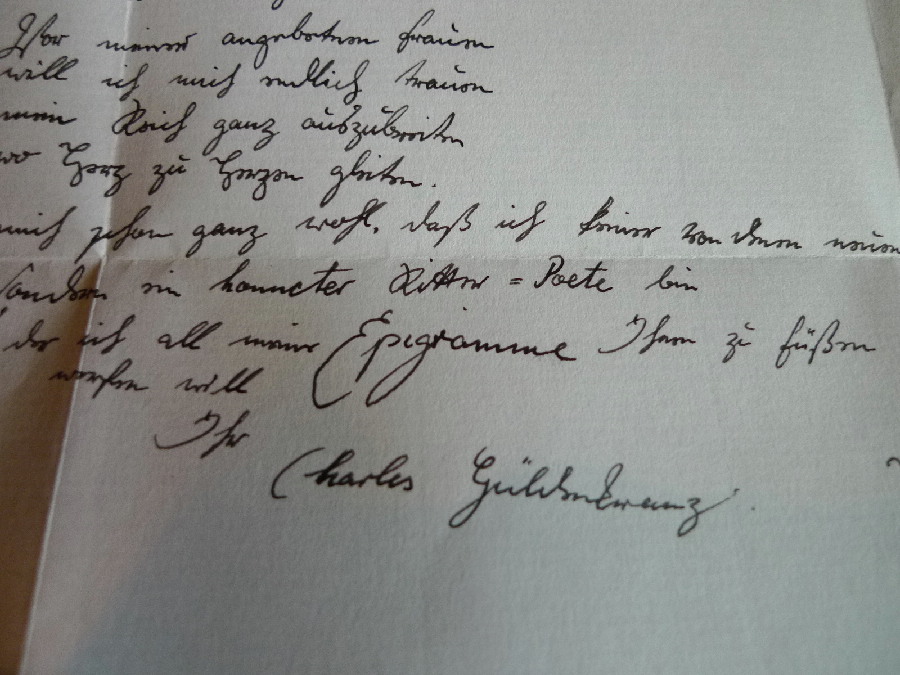 Vor meiner angebetnen Frauen
will ich mich endlich trauen
mein Reich ganz auszubreiten
wo Herz zu Herzen gleiten.
mich schon ganz wohl, daß ich keiner von denen neuen
sondern ein honneter Ritter=Poete bin
der ich all meine Epigramme Ihnen zu Füßen
werfen will
Ihr
Charles Güldenkranz